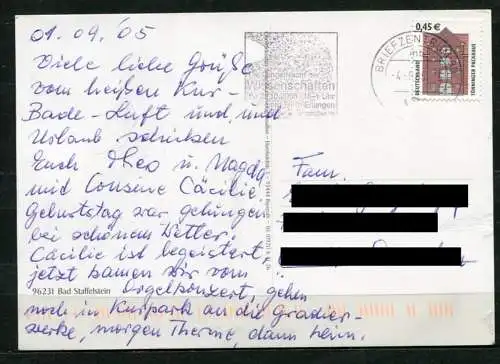 01.09.'05
Viele liebe Grüße
vom heißen Kur-
Bade-Luft und und
Urlaub schicken
Euch Theo u. Magda
mid Consene Cäcilie.
Geburtstag war gelungen
bei schönem Wetter.
Cäcilie ist begeistert,
jetzt kamen wir vom
Orgelkonzert, gehen
noch in Kurpark an die Gradier-
werke, morgen Therme, dann heim.
96231 Bad Staffelstein
Wissenschaften
Uhr
Erlangen
BRIEFZEN
0,45 €
DEUTSCHLAND
TÖNNINGER PACKHAUS
Fam.